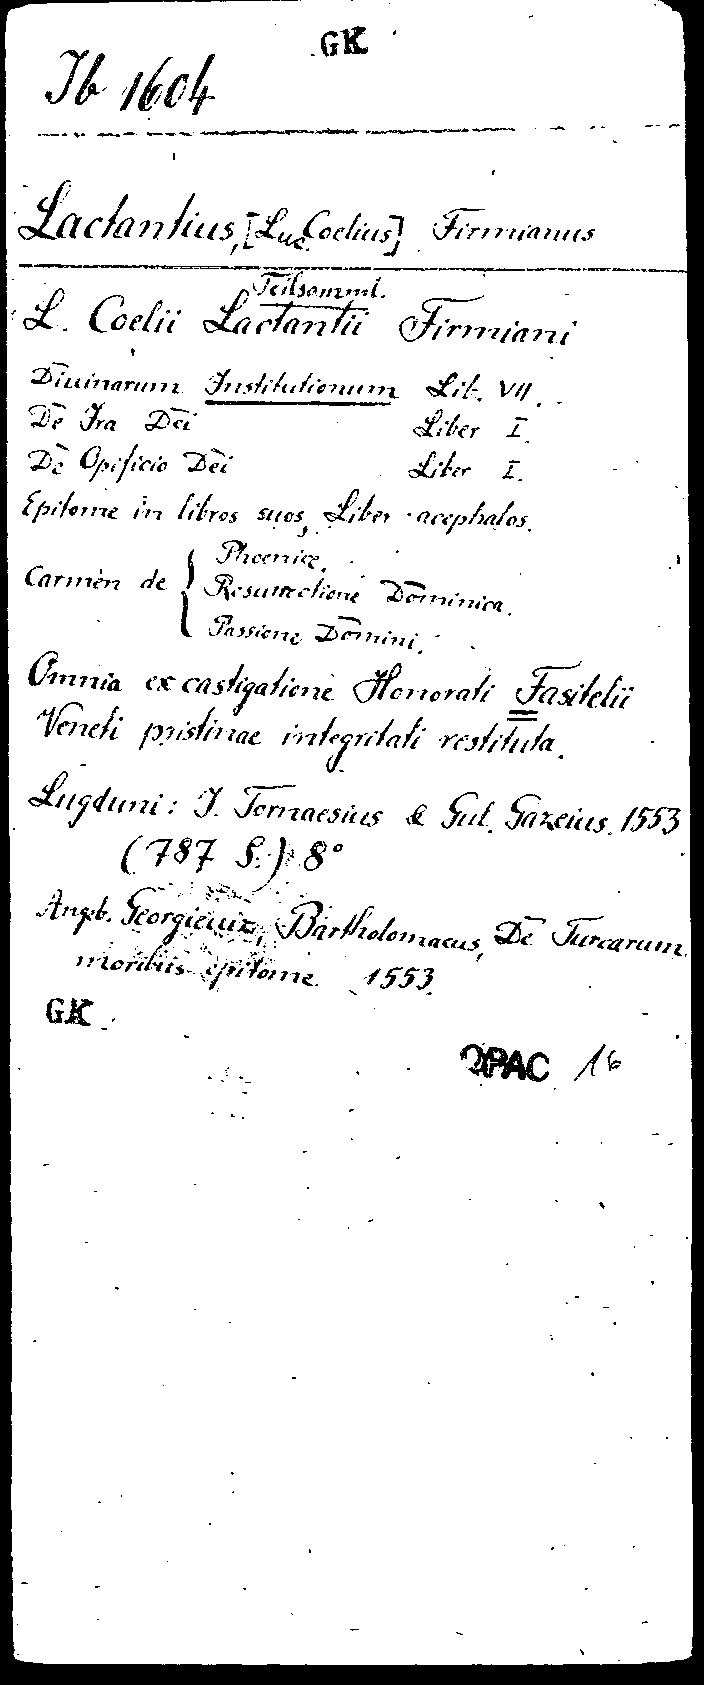 GK
Ib 1604
Lactantius, [Luc. Coelius] Firmianus
Teilsamml.
L. Coelii Lactantii Firmiani
Diuinarum Institutionum Lib. VII.
De Ira Dei Liber I.
De Opificio Dei Liber I.
Epitome in libros suos, Liber acephalos.
Carmen de { Phoenice.
Resurrectione Dominica.
Passione Domini.
Omnia ex castigatione Honorati Fasitelii
Veneti pristinae integritati restituta.
Lugduni: J. Tornaesius & Gul. Gazeius. 1553
(787 S.) 8°
Angeb. Georgieuiz, Bartholomaeus, De Turcarum
moribus epitome. 1553.
GK
OPAC 16